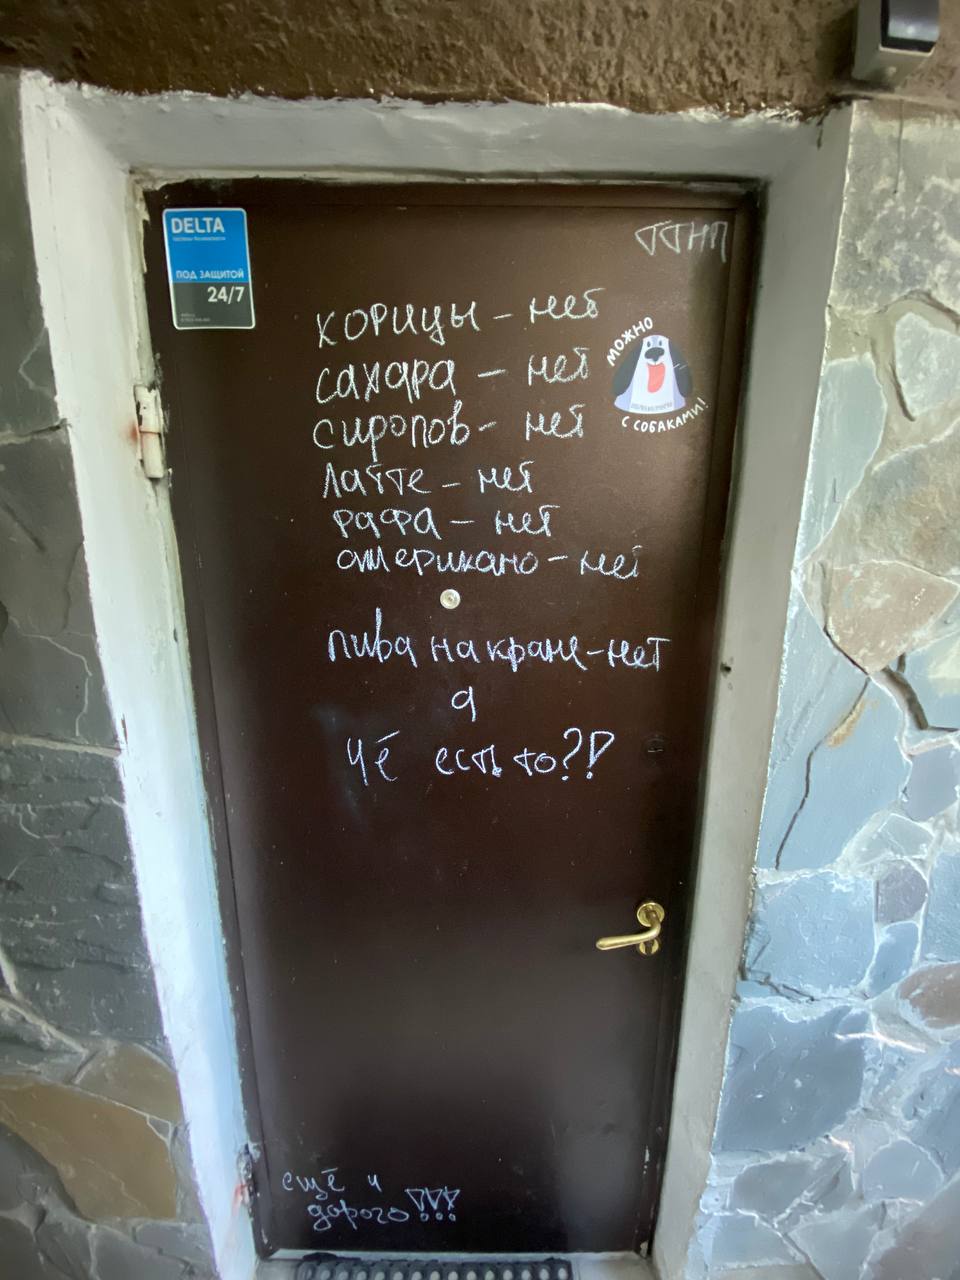 DELTA
ПОД ЗАЩИТОЙ
24/7
ТТНП
корицы – нет
сахара – нет
сиропов – нет
латте – нет
рафа – нет
американо – нет
пива на кране – нет
а
чё есть то?!
МОЖНО
С СОБАКАМИ!
ещё и
дорого!!!